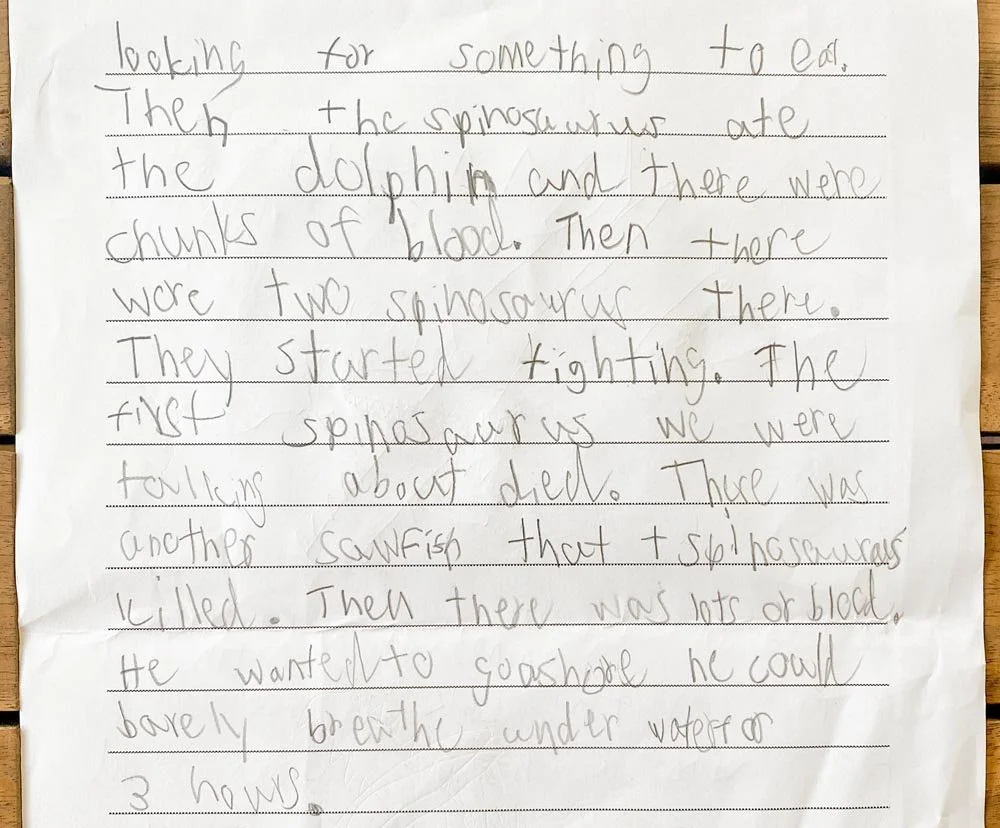 looking for something to eat.
Then the spinosaurus ate
the dolphin and there were
chunks of blood. Then there
were two spinosaurus there.
They started fighting. The
first spinosaurus we were
talking about died. There was
another sawfish that t spinosauraus
killed. Then there was lots of blood.
He wanted to go ashore he could
barely breathe under water for
3 hours.